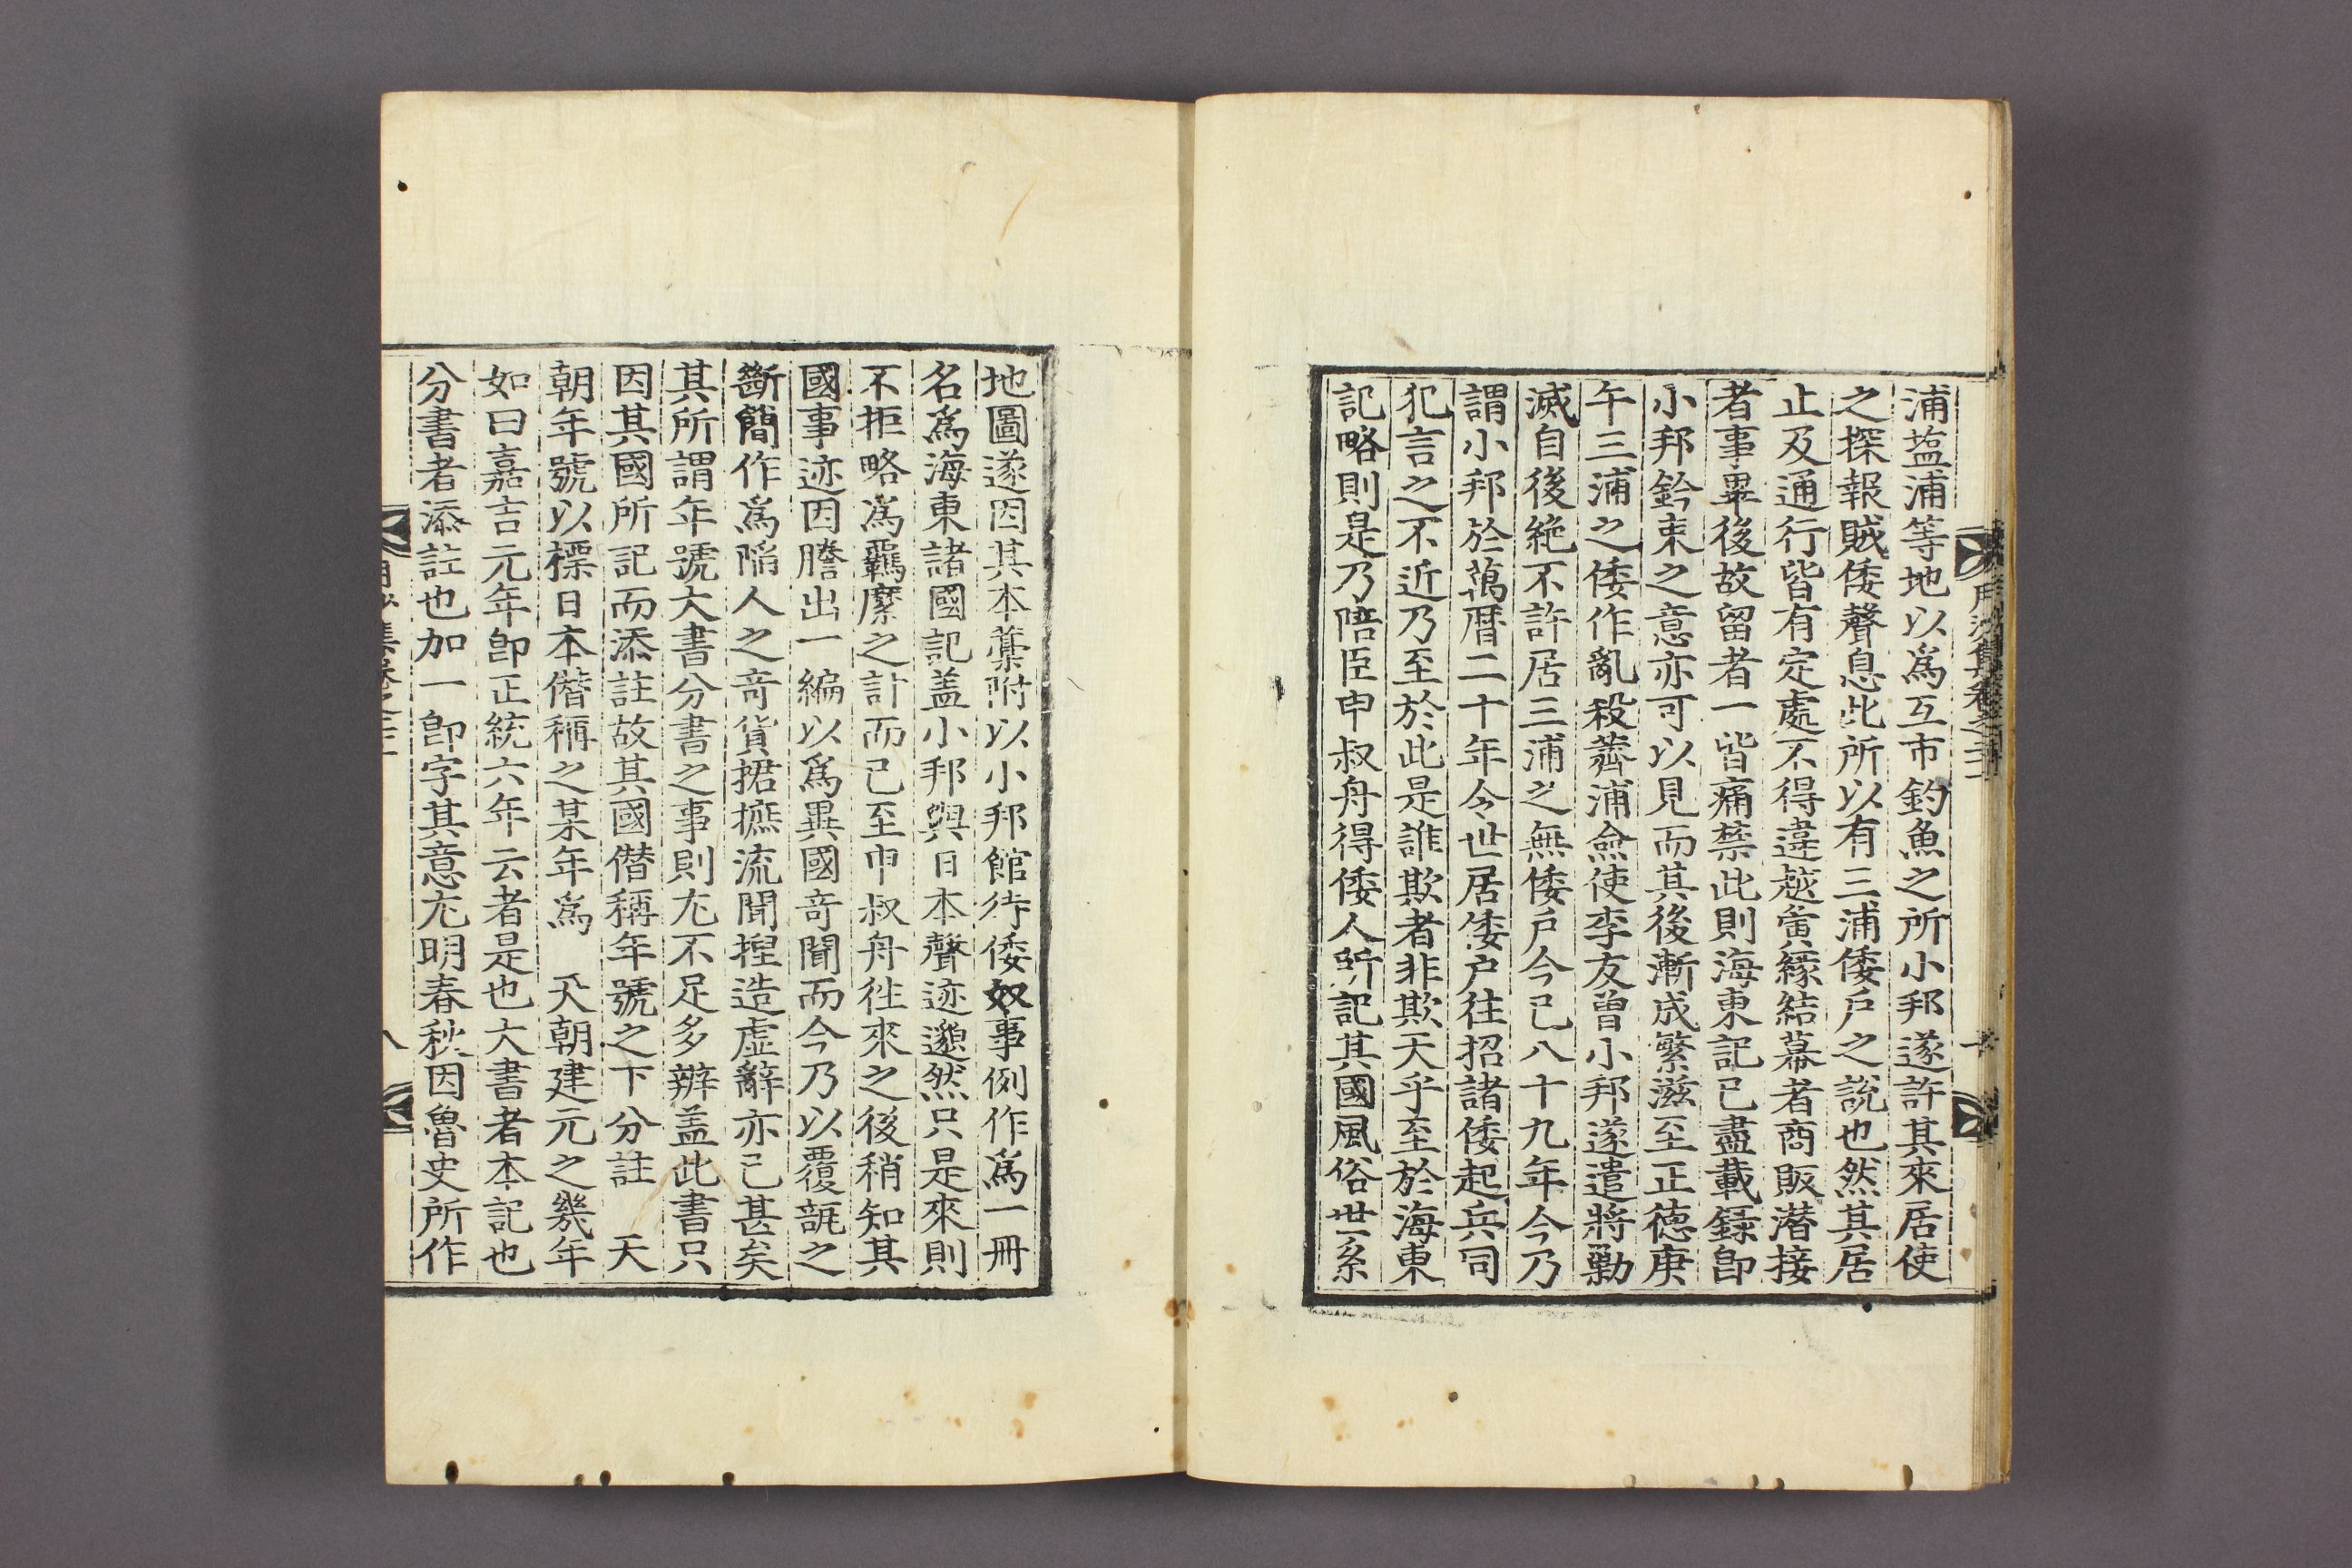 浦塩浦等地以爲互市釣魚之所小邦遂許其來居使
之探報賊倭聲息此所以有三浦倭戶之說也然其居
止及通行皆有定處不得違越夤緣結幕者商販潜接
者事畢後故留者一皆痛禁此則海東記已盡載錄卽
小邦鈐束之意亦可以見而其後漸成繁滋至正德庚
午三浦之倭作亂殺薺浦僉使李友曾小邦遂遣將勦
滅自後絶不許居三浦之無倭戶今已八十九年今乃
謂小邦於萬曆二十年令世居倭户往招諸倭起兵同
犯言之不近乃至於此是誰欺者非欺天乎至於海東
記略則是乃陪臣申叔舟得倭人所記其國風俗世系
地圖遂因其本藁附以小邦館待倭奴事例作爲一冊
名爲海東諸國記盖小邦與日本聲迹邈然只是來則
不拒略爲羈縻之計而已至申叔舟徃來之後稍知其
國事迹因謄出一編以爲異國奇聞而今乃以覆瓿之
斷簡作爲陷人之奇貨捃摭流聞揑造虛辭亦已甚矣
其所謂年號大書分書之事則尤不足多辨盖此書只
因其國所記而添註故其國僣稱年號之下分註　天
朝年號以標日本僣稱之某年爲　天朝建元之幾年
如曰嘉吉元年卽正統六年云者是也大書者本記也
分書者添註也加一卽字其意尤明春秋因魯史所作
月沙集卷之二十一
八